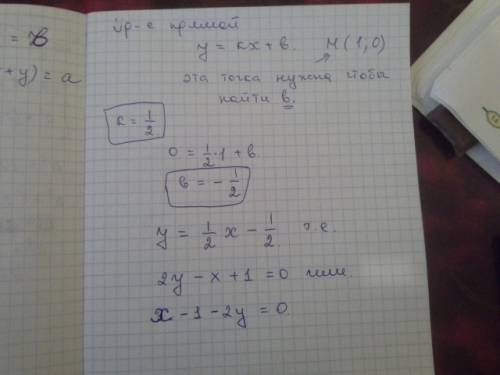 = b
+y) = a
ур-е прямой
y = kx + b. M(1;0)
эта точка нужна чтобы
найти b.
k = 1/2
0 = 1/2·1 + b
b = -1/2
y = 1/2 x - 1/2. т.е.
2y - x + 1 = 0 или.
x - 1 - 2y = 0.